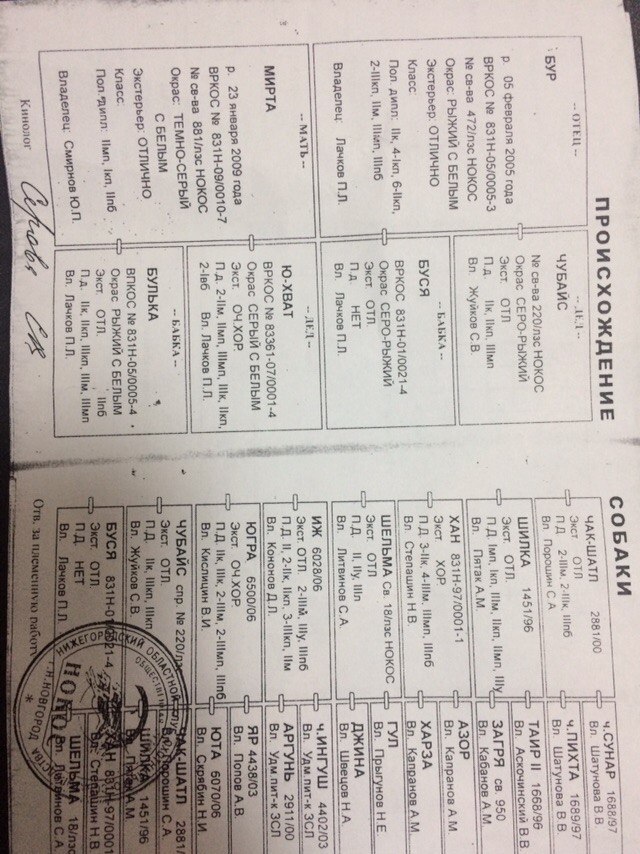 ПРОИСХОЖДЕНИЕ СОБАКИ
-- ОТЕЦ --
БУР
р. 05 февраля 2005 года
ВРКОС № 831Н-05/0005-3
№ св-ва 472/лэс НОКОС
Окрас: РЫЖИЙ С БЕЛЫМ
Экстерьер: ОТЛИЧНО
Класс:
Пол. дипл: IIк, 4-Iкп, 6-IIкп,
2-IIIкп, IIм, IIIмп, IIIпб
Владелец: Лачков П.Л.
-- МАТЬ --
МИРТА
р. 23 января 2009 года
ВРКОС № 831Н-09/0010-7
№ св-ва 881/лэс НОКОС
Окрас: ТЕМНО-СЕРЫЙ
С БЕЛЫМ
Экстерьер: ОТЛИЧНО
Класс:
Пол. дипл: IIмп, Iкп, IIпб
Владелец: Смирнов Ю.П.
Кинолог
-- ДЕД --
ЧУБАЙС
№ св-ва 220/лэс НОКОС
Окрас: СЕРО-РЫЖИЙ
Экст. ОТЛ
П.д. IIк, IIкп, IIIмп
Вл. Жуйков С.В.
-- БАБКА --
БУСЯ
ВРКОС 831Н-01/0021-4
Окрас: СЕРО-РЫЖИЙ
Экст. ОТЛ
П.д. НЕТ
Вл. Лачков П.Л
-- ДЕД --
Ю-ХВАТ
ВРКОС № 83361-07/0001-4
Окрас: СЕРЫЙ С БЕЛЫМ
Экст. ОЧ.ХОР
П.д. 2-IIм, IIмп, IIIмп, IIIк, IIкп,
2-Iвб Вл. Лачков П.Л.
-- БАБКА --
БУЛЬКА
ВПКОС № 831Н-05/0005-4
Окрас: РЫЖИЙ С БЕЛЫМ
Экст. ОТЛ IIпб
П.д. IIк, IIкп, IIIкп, IIIм, IIIмп
Вл. Лачков П.Л
ЧАК-ШАТЛ 2881/00
Экст ОТЛ
П.Д. 2-IIIм, 2-IIIк, IIIпб
Вл. Порошин С.А
ШИЛКА 1451/96
Экст. ОТЛ.
П.Д Iмп, Iкп, IIм, IIмп, IIIу
Вл. Пятак А.М.
ХАН 831Н-97/0001-1
Экст ХОР
П.Д 3-IIк, 4-IIIм, IIIмп, IIIпб
Вл. Степашин Н.В.
ШЕЛЬМА Св. 18/лэс НОКОС
Экст ОТЛ
П.Д II, IIу, IIIп
Вл. Литвинов С.А.
ИЖ 6028/06
Экст ОТЛ 2-IIIм, IIIу, IIIпб
П.Д II, 2-IIк, IIкп, 3-IIIкп, IIм
Вл. Кононов Д.Л.
ЮГРА 6500/06
Экст. ОЧ.ХОР
П.Д. IIк, IIIк, 2-IIIм, 2-IIIмп, IIIпб
Вл. Кислицин В.И.
ЧУБАЙС спр. № 220/лэс
Экст. ОТЛ
П.Д IIк, IIIкп, IIIкп
Вл. Жуйков С.В.
БУСЯ 831Н-01/0021-4
Экст ОТЛ
П.Д. НЕТ
Вл. Лачков П.Л
Отв. за племенную работу
ч.СУНАР 1688/97
Вл. Шатунова В.В.
ч.ПИХТА 1689/97
Вл. Шатунова В.В
ТАИР II 1668/96
Вл. Аскочинский В.В
ЗАГРЯ св. 950
Вл. Кабанов А.М.
АЗОР
Вл. Капранов А.М
ХАРЗА
Вл. Капранов А.М.
ГУЛ
Вл. Прыгунов Н.Е.
ДЖИНА
Вл. Швецов Н.А.
ч.ИНГУШ 4402/03
Вл. Удм.пит-к ЗСЛ
АРГУНЬ 2911/00
Вл. Удм.пит-к ЗСЛ
ЯР 4438/03
Вл. Попов А.В.
ЮТА 6070/06
Вл. Скрябин Н.И.
ЧАК-ШАТЛ 2881/
Вл. Порошин С.А
ШИЛКА 1451/96
Вл. Пятак А.М.
ХАН 831Н-97/0001
Вл. Степашин Н.В
ШЕЛЬМА 18/лэс
Вл. Литвинов С.А
НИЖЕГОРОДСКИЙ ОБЛАСТНОЙ
Г.Н.НОВГОРОД
НОКО